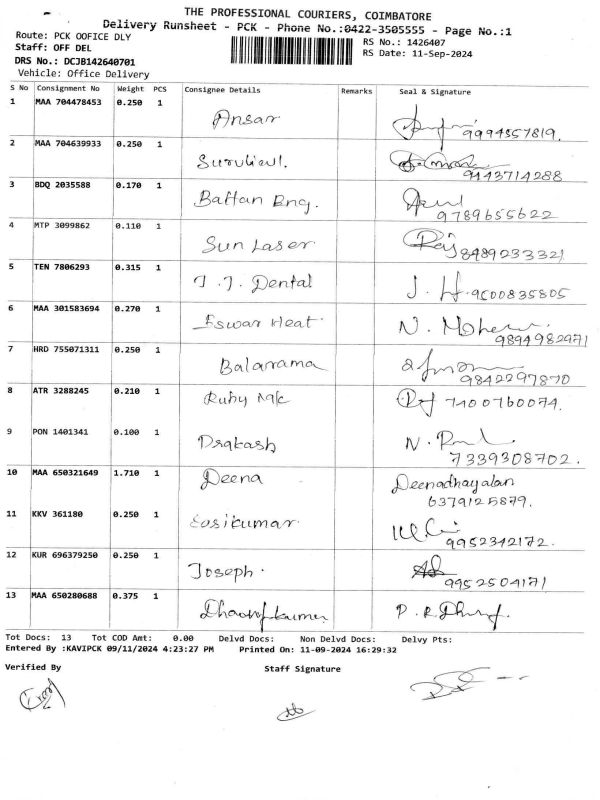 THE PROFESSIONAL COURIERS, COIMBATORE
Delivery Runsheet - PCK - Phone No.:0422-3505555 - Page No.:1
Route: PCK OOFICE DLY
RS No.: 1426407
Staff: OFF DEL
RS Date: 11-Sep-2024
DRS No.: DCJB142640701
Vehicle: Office Delivery
S No Consignment No Weight PCS Consignee Details Remarks Seal & Signature
1 MAA 704478453 0.250 1 Ansar
9994357819.
2 MAA 704639933 0.250 1
9443714288
3 BDQ 2035588 0.170 1 Battan Eng.
9789655622
4 MTP 3099862 0.110 1 Sun Laser
8489233321
5 TEN 7806293 0.315 1 J.J. Dental J. H. 9500835805
6 MAA 301583694 0.270 1 Eswar Heat
9894982971
7 HRD 755071311 0.250 1 Balarama
9842297870
8 ATR 3288245 0.210 1 Ruby
7400760074.
9 PON 1401341 0.100 1 Prakash
7339308702.
10 MAA 650321649 1.710 1 Deena Deenadhayalan
6379125879.
11 KKV 361180 0.250 1
9952342172.
12 KUR 696379250 0.250 1 Joseph.
9952504171
13 MAA 650280688 0.375 1
Tot Docs: 13 Tot COD Amt: 0.00 Delvd Docs: Non Delvd Docs: Delvy Pts:
Entered By :KAVIPCK 09/11/2024 4:23:27 PM Printed On: 11-09-2024 16:29:32
Verified By Staff Signature